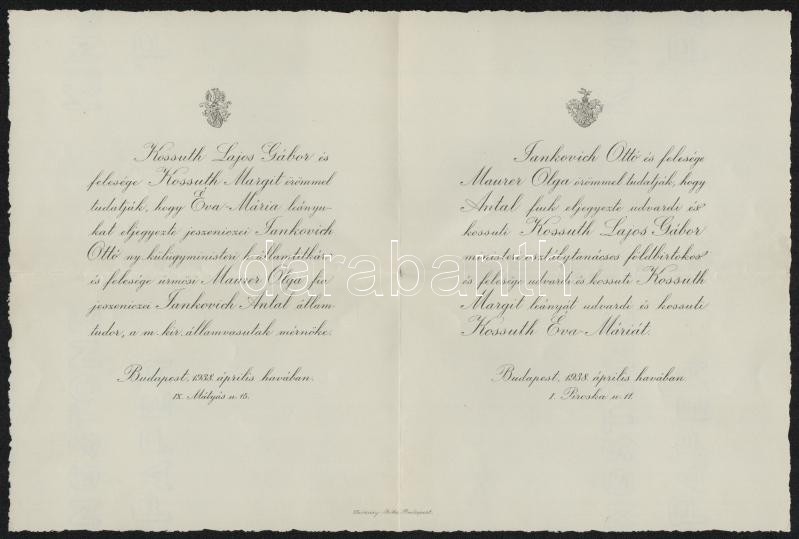 Kossuth Lajos Gábor és
felesége Kossuth Margit örömmel
tudatják, hogy Éva-Mária leányu-
kat eljegyezte jeszeniczei Jankovich
Ottó ny. külügyministeri h. államtitkár
és felesége ürmösi Maurer Olga fia
jeszeniczei Jankovich Antal állam-
tudor, a m. kir. államvasutak mérnöke.
Budapest, 1938. április havában.
IX. Mátyás u. 15.
Jankovich Ottó és felesége
Maurer Olga örömmel tudatják, hogy
Antal fiuk eljegyezte udvardi és
kossuti Kossuth Lajos Gábor
ministeri osztálytanácsos földbirtokos
és felesége udvardi és kossuti Kossuth
Margit leányát udvardi és kossuti
Kossuth Éva-Máriát.
Budapest, 1938. április havában.
I. Piroska u. 11.
darabanth
Budapest.